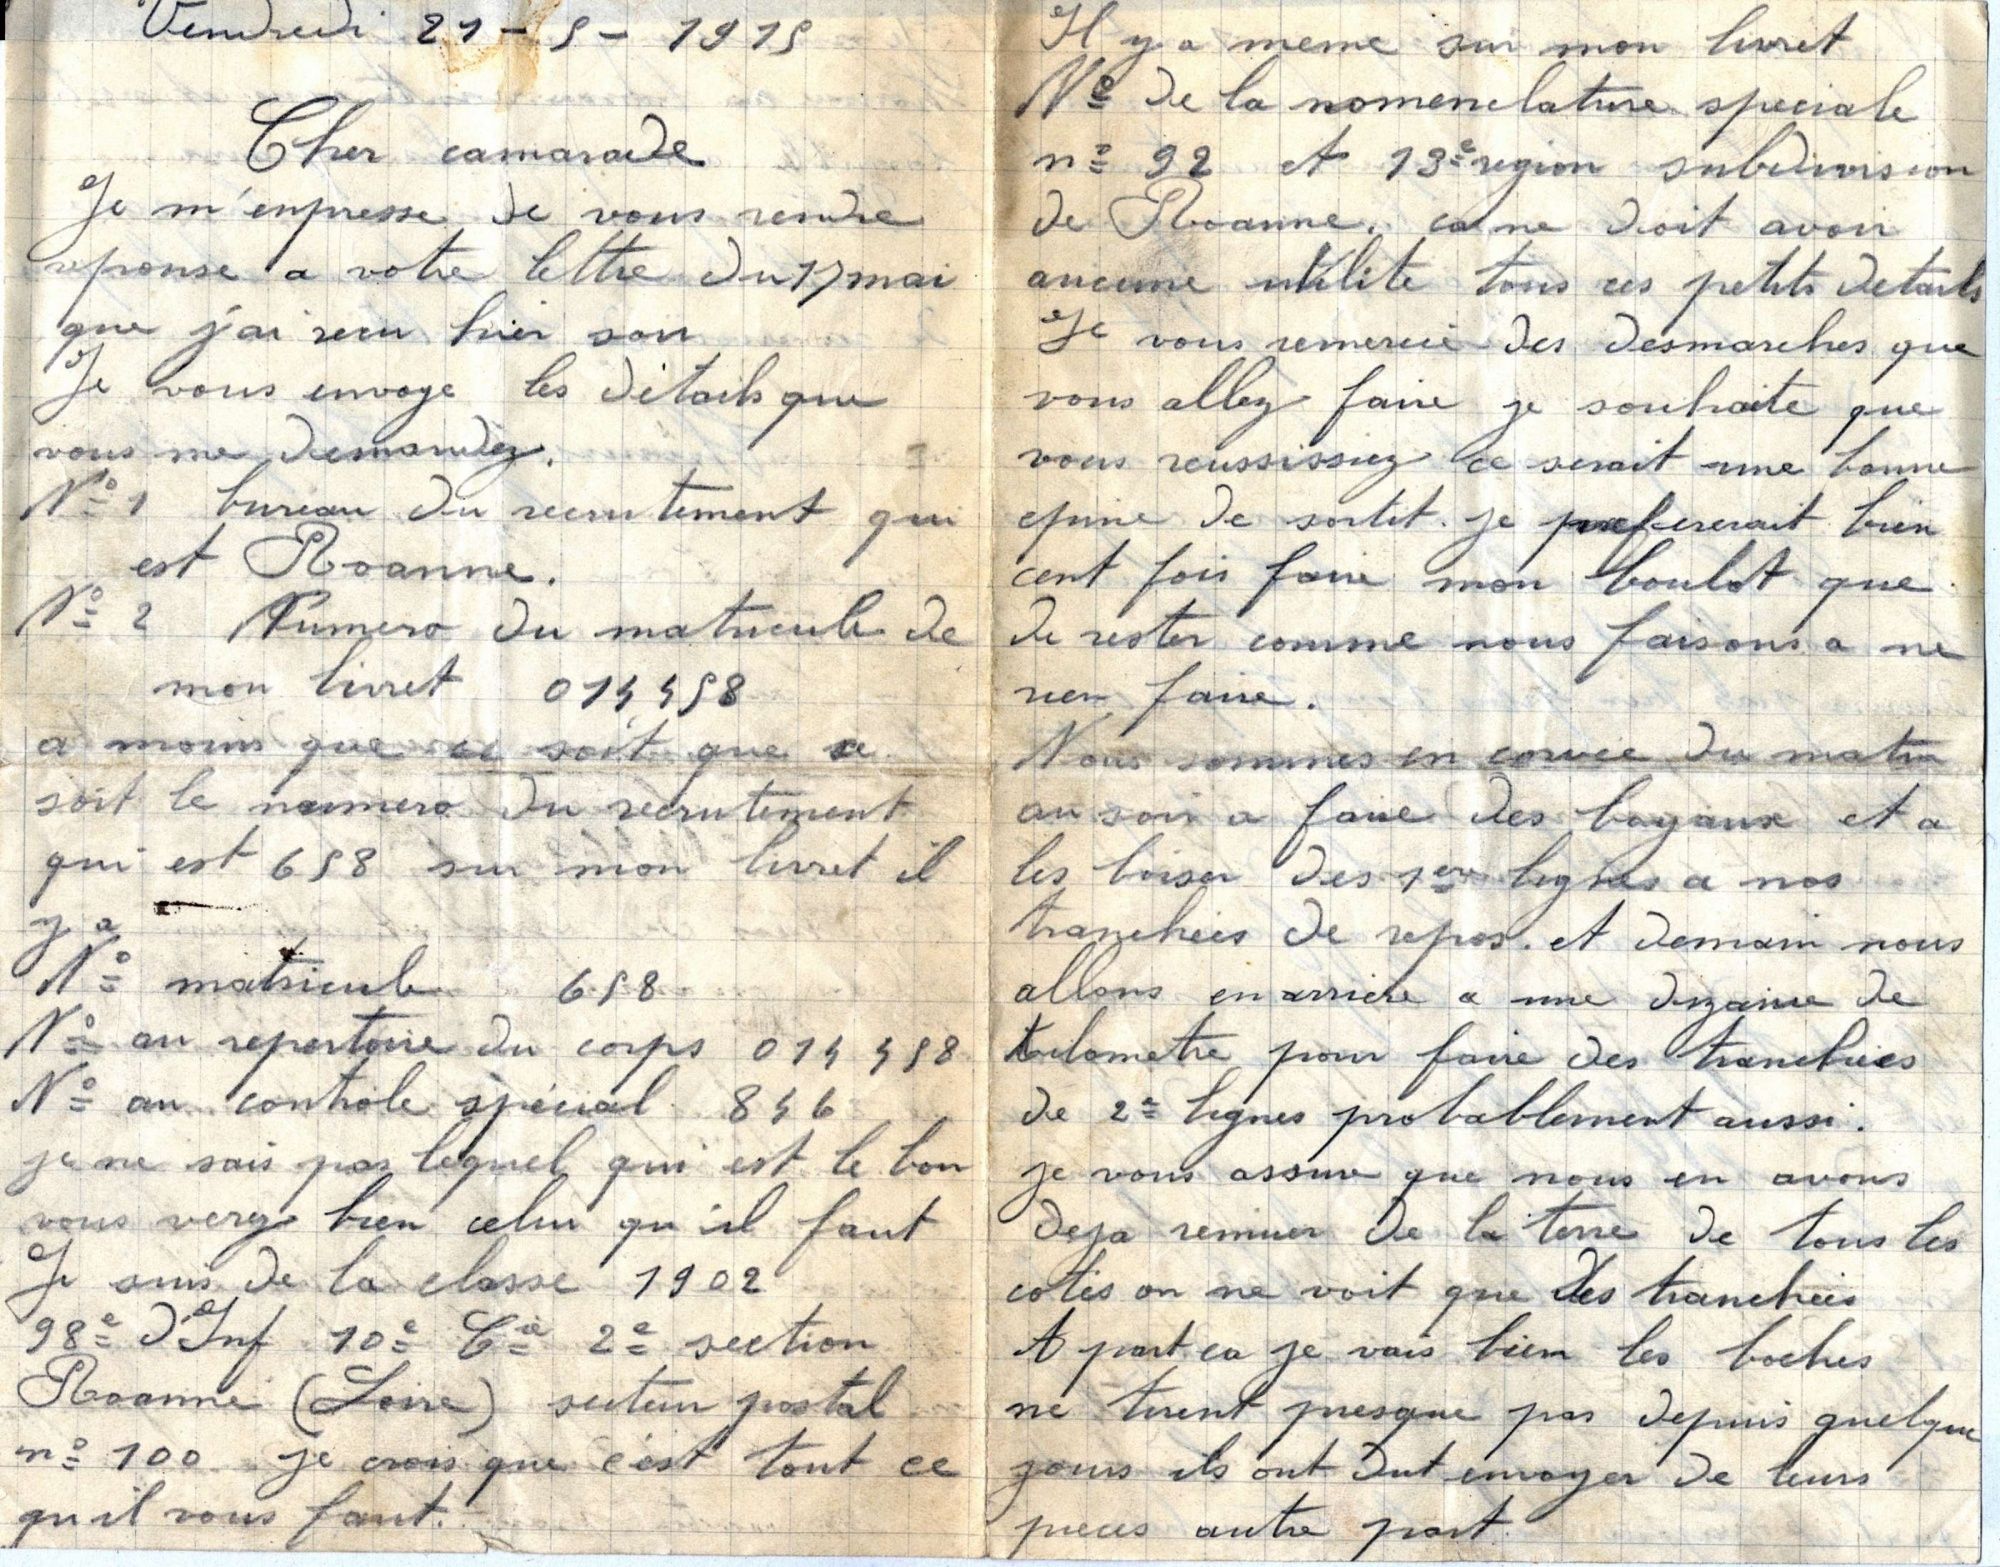 Vendredi 21 - 5 - 1915
Cher camarade
Je m'enpresse de vous rendre
reponse a votre lettre du 17 mai
que j'ai recu hier soir
Je vous envoye les détails que
vous me demandez.
Nº 1 bureau du recrutement qui
est Roanne.
Nº 2 Numero du matricule de
mon livret 014458
a moins que ce soit que ce
soit le numero du recrutement
qui est 658 sur mon livret il
y a
Nº matricule 658
Nº au repertoire du corps 014458
Nº au contrôle spécial 846
je ne sais pas lequel qui est le bon
vous verez bien celui qu'il faut
Je suis de la classe 1902
98e d'Inf 10e Cie 2e section
Roanne (Loire) secteur postal
nº 100 je crois que c'est tout ce
qu il vous faut.
Il y a meme sur mon livret
Nº de la nomenclature speciale
nº 92 et 13e region subdivision
de Roanne. ca ne doit avoir
aucune utilite tous ces petits details
Je vous remercie des desmarches que
vous allez faire je souhaite que
vous reussissiez ce serait une bonne
epine de sortit. je prefererait bien
cent fois faire mon boulot que
de rester comme nous faisons a ne
rien faire.
Nous sommes en corvee du matin
au soir a faire des boyaux et a
les boiser des 1ere lignes a nos
tranchées de repos. et demain nous
allons en arriere a une dizaine de
kilometre pour faire des tranchées
de 2e lignes probablement aussi.
je vous assure que nous en avons
deja remuer de la terre de tous les
cotés on ne voit que des tranchées
A part ca je vais bien les boches
ne tirent presque pas depuis quelque
jours ils ont dut envoyer de leurs
pieces autre part.